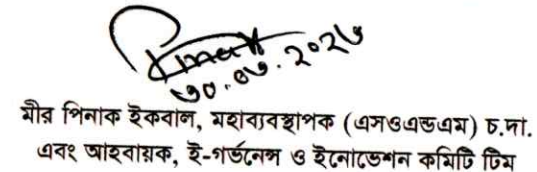 ৩০.০৬.২০২৬
মীর পিনাক ইকবাল, মহাব্যবস্থাপক (এসওএন্ডএম) চ.দা.
এবং আহবায়ক, ই-গর্ভনেন্স ও ইনোভেশন কমিটি টিম